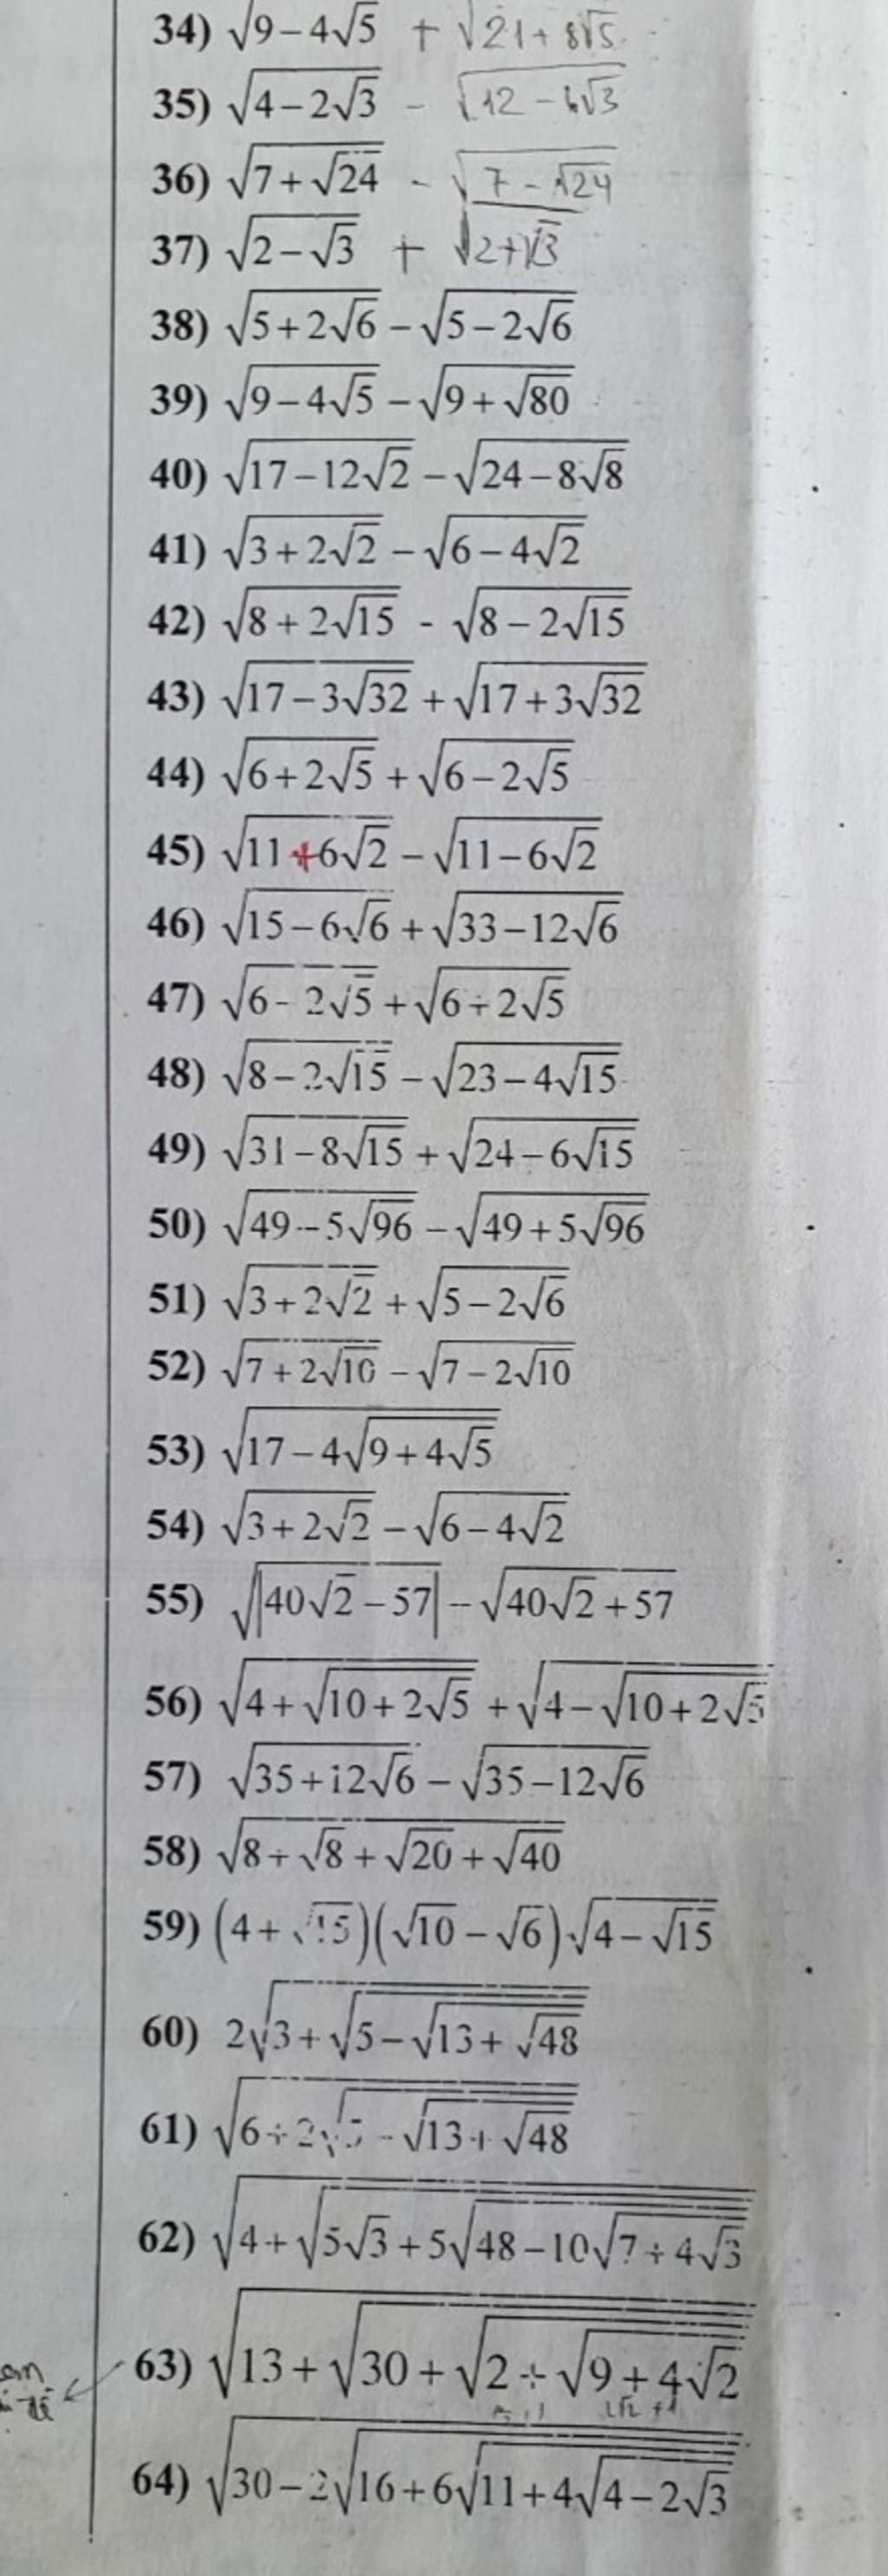 34) √(9−4√5) + √(21+8√5)
35) √(4−2√3) − √(12−6√3)
36) √(7+√24) − √(7−√24)
37) √(2−√3) + √(2+√3)
38) √(5+2√6) − √(5−2√6)
39) √(9−4√5) − √(9+√80)
40) √(17−12√2) − √(24−8√8)
41) √(3+2√2) − √(6−4√2)
42) √(8+2√15) - √(8−2√15)
43) √(17−3√32) + √(17+3√32)
44) √(6+2√5) + √(6−2√5)
45) √(11+6√2) − √(11−6√2)
46) √(15−6√6) + √(33−12√6)
47) √(6−2√5) + √(6+2√5)
48) √(8−2√15) − √(23−4√15)
49) √(31−8√15) + √(24−6√15)
50) √(49−5√96) − √(49+5√96)
51) √(3+2√2) + √(5−2√6)
52) √(7+2√10) − √(7−2√10)
53) √(17−4√(9+4√5))
54) √(3+2√2) − √(6−4√2)
55) √|40√2−57| − √(40√2+57)
56) √(4+√(10+2√5)) + √(4−√(10+2√5))
57) √(35+12√6) − √(35−12√6)
58) √(8+√8+√20+√40)
59) (4+√15)(√10−√6)√(4−√15)
60) 2√(3+√(5−√(13+√48)))
61) √(6+2√(5−√(13+√48)))
62) √(4+√(5√3+5√(48−10√(7+4√3))))
63) √(13+√(30+√(2+√(9+4√2))))
64) √(30−2√(16+6√(11+4√(4−2√3))))